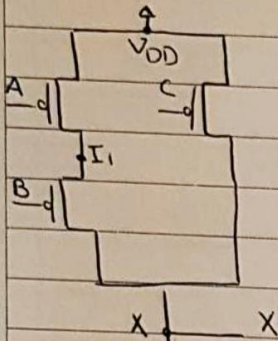 VDD
A
C
I1
B
X
X